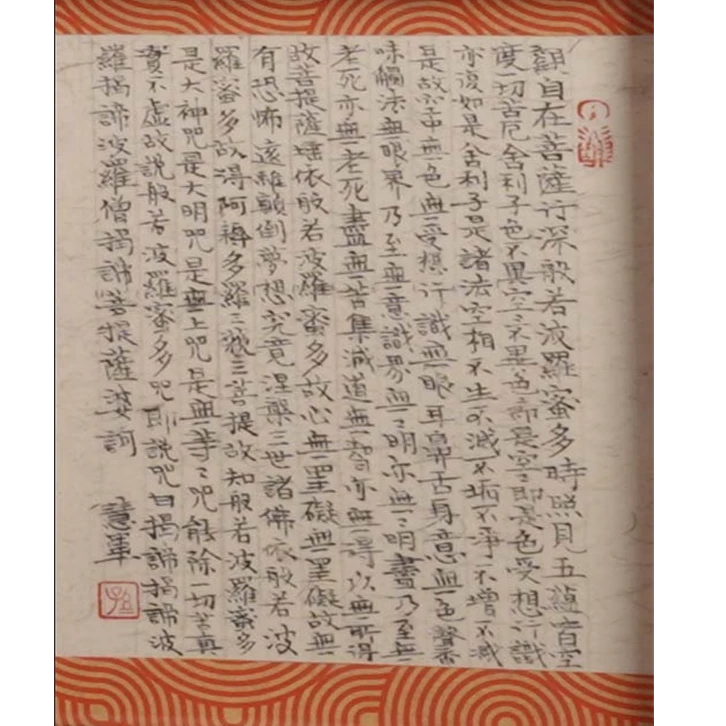 觀自在菩薩行深般若波羅蜜多時照見五蘊皆空
度一切苦厄舍利子色不異空空不異色色即是空空即是色受想行識
亦復如是舍利子是諸法空相不生不滅不垢不淨不增不減
是故空中無色無受想行識無眼耳鼻舌身意無色聲香
味觸法無眼界乃至無意識界無無明亦無無明盡乃至無
老死亦無老死盡無苦集滅道無智亦無得以無所得
故菩提薩埵依般若波羅蜜多故心無罣礙無罣礙故無
有恐怖遠離顛倒夢想究竟涅槃三世諸佛依般若波
羅蜜多故得阿耨多羅三藐三菩提故知般若波羅蜜多
是大神咒是大明咒是無上咒是無等〻咒能除一切苦真
實不虛故說般若波羅蜜多咒即說咒曰揭諦揭諦波
羅揭諦波羅僧揭諦菩提薩婆訶
慧軍